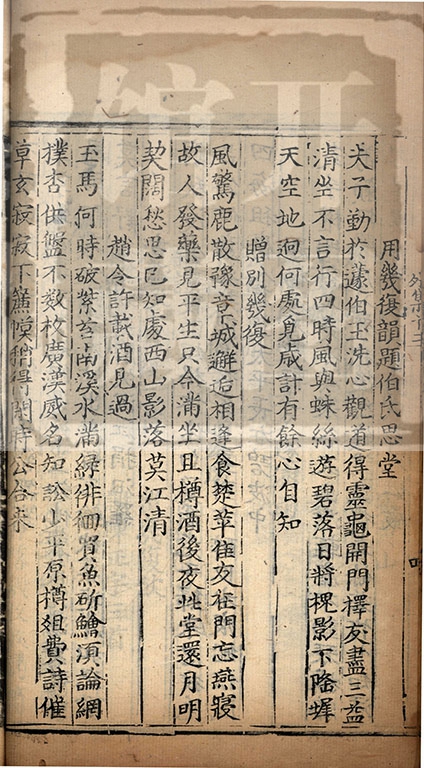 用幾復韻題伯氏思堂
夫子勤於蘧伯玉洗心觀道得靈龜開門擇友盡三益
清坐不言行四時風與蛛絲遊碧落日將槐影下隆墀
天空地迥何處覓歲計有餘心自知
贈別幾復
風驚鹿散豫章城邂逅相逢食楚苹佳友在門忘燕寢
故人發藥見平生只今滿坐且樽酒後夜此堂還月明
契闊愁思已知處西山影落莫江清
趙令許載酒見過
玉馬何時破紫玄南溪水滿綠徘徊買魚斫鱠須論網
撲杏供盤不數枚廣漢威名知訟少平原樽俎費詩催
草玄寂寂下簾幙稍得閑時公合來